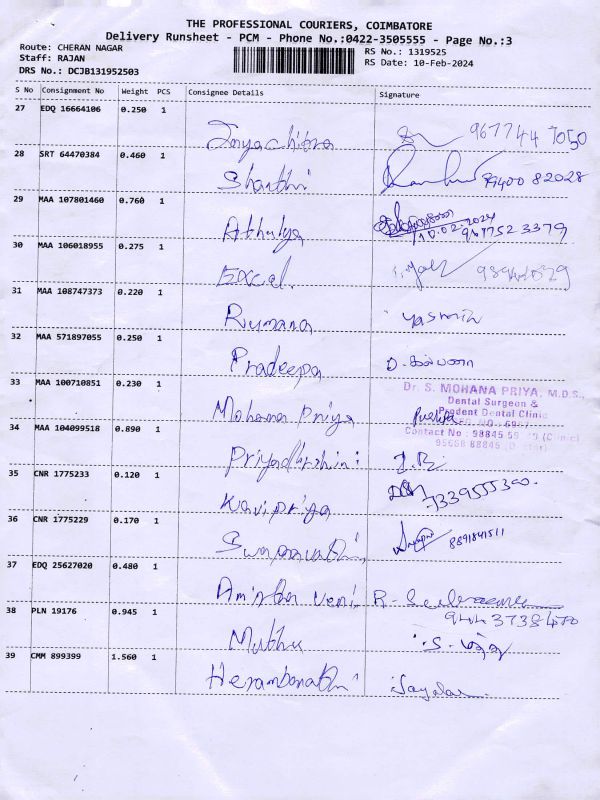 THE PROFESSIONAL COURIERS, COIMBATORE
Delivery Runsheet - PCM - Phone No.:0422-3505555 - Page No.:3
Route: CHERAN NAGAR
RS No.: 1319525
Staff: RAJAN
RS Date: 10-Feb-2024
DRS No.: DCJB131952503
S No Consignment No Weight PCS Consignee Details Signature
27 EDQ 16664106 0.250 1
Jayachitra 967744 7050
28 SRT 64470384 0.460 1
Shanthi 99400 82028
29 MAA 107801460 0.760 1
Athulya 10.02.2024
967752 3379
30 MAA 106018955 0.275 1
Excel
31 MAA 108747373 0.220 1
Rumana Yasmin
32 MAA 571897055 0.250 1
Pradeepa D. கல்பனா
33 MAA 100710851 0.230 1
Dr. S. MOHANA PRIYA, M.D.S.,
Dental Surgeon &
Prudent Dental Clinic
Mohana Priya
Contact No : 98845
95658 88845
34 MAA 104099518 0.890 1
Priyadarshini
35 CNR 1775233 0.120 1
Kavipriya 7339555300.
36 CNR 1775229 0.170 1
8891841511
37 EDQ 25627020 0.480 1
38 PLN 19176 0.945 1
Muthu
39 CMM 899399 1.560 1